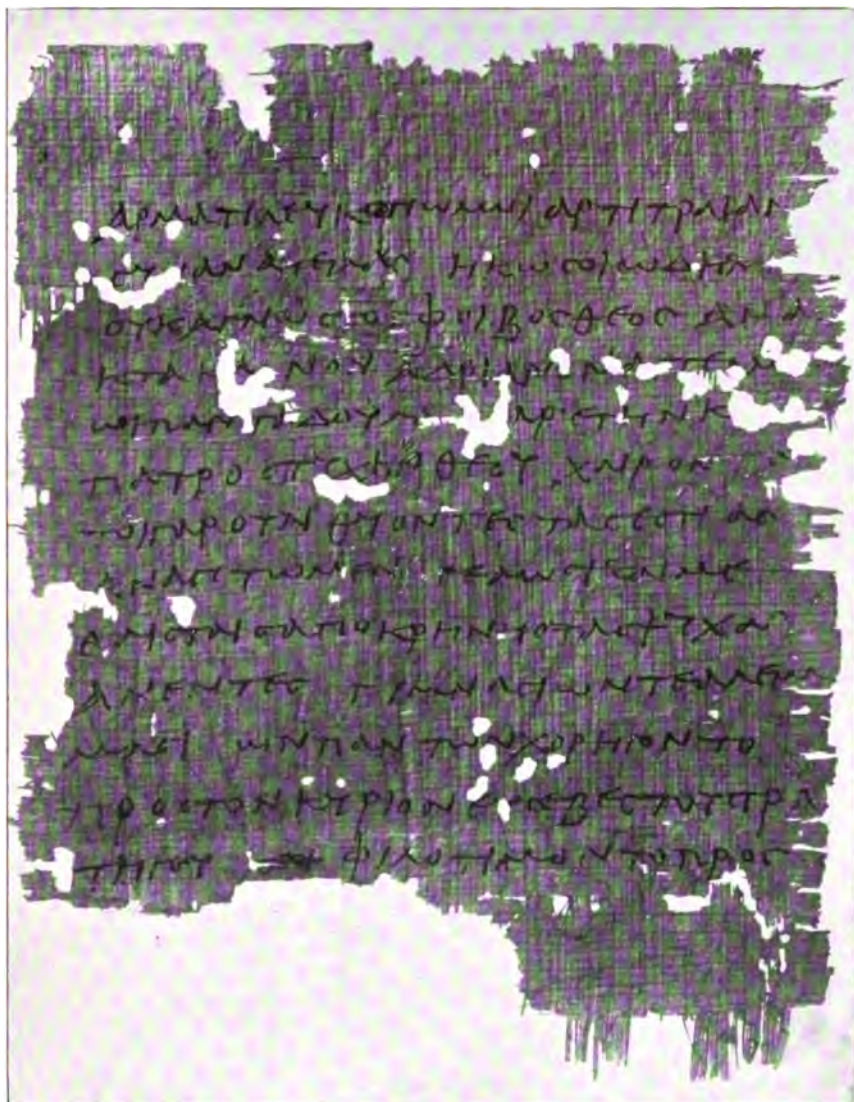 ΑΡΜΑΤΙΛΕΥΚΟΠΩΛΩΙΑΡΤΙΤΡΑΙΑΝ
ΣΥΝΑΝΑΤΕΙΛΑΣ ΗΚΩΣΟΙΩΔΗΜ
ΟΥΚΑΓΝΩΣΤΟΣ ΦΟΙΒΟΣΘΕΟΣ ΑΝΑ
ΚΤΑΚΑΙΝΟΝ ΑΔΡΙΑΝΟΝ
ΩΙΠΑΝΤΑΔΟΥΛΑ ΑΡΕΤΗΝΚ
ΠΑΤΡΟΣΤΥΧΗΝΘΕΟΥ ΧΑΙΡΟΝ
ΤΟΙΓΑΡΟΥΝΘΥΟΝΤΕΣ ΤΑΣΕΣΤΙΑΣ
ΑΝΑΠΤΩΜΕΝ ΓΕΛΩΣΙΚΑΙΜΕ
ΘΑΙΣΤΑΙΣΑΠΟΚΡΗΝΗΣΤΑΣΨΥΧΑΣ
ΑΝΕΝΤΕΣ ΓΥΜΝΑΣΙΩΝΤΕΑΛΕΙΜ
ΜΑΣΙ ΩΝΠΑΝΤΩΝΧΟΡΗΓΟΝΤΟ
ΠΡΟΣΤΟΝΚΥΡΙΟΝΕΥΣΕΒΕΣΤΟΥΣΤΡΑ
ΤΗΓΟΥ ΦΙΛΟΤΙΜΟΝΤΕΤΟΠΡΟΣ